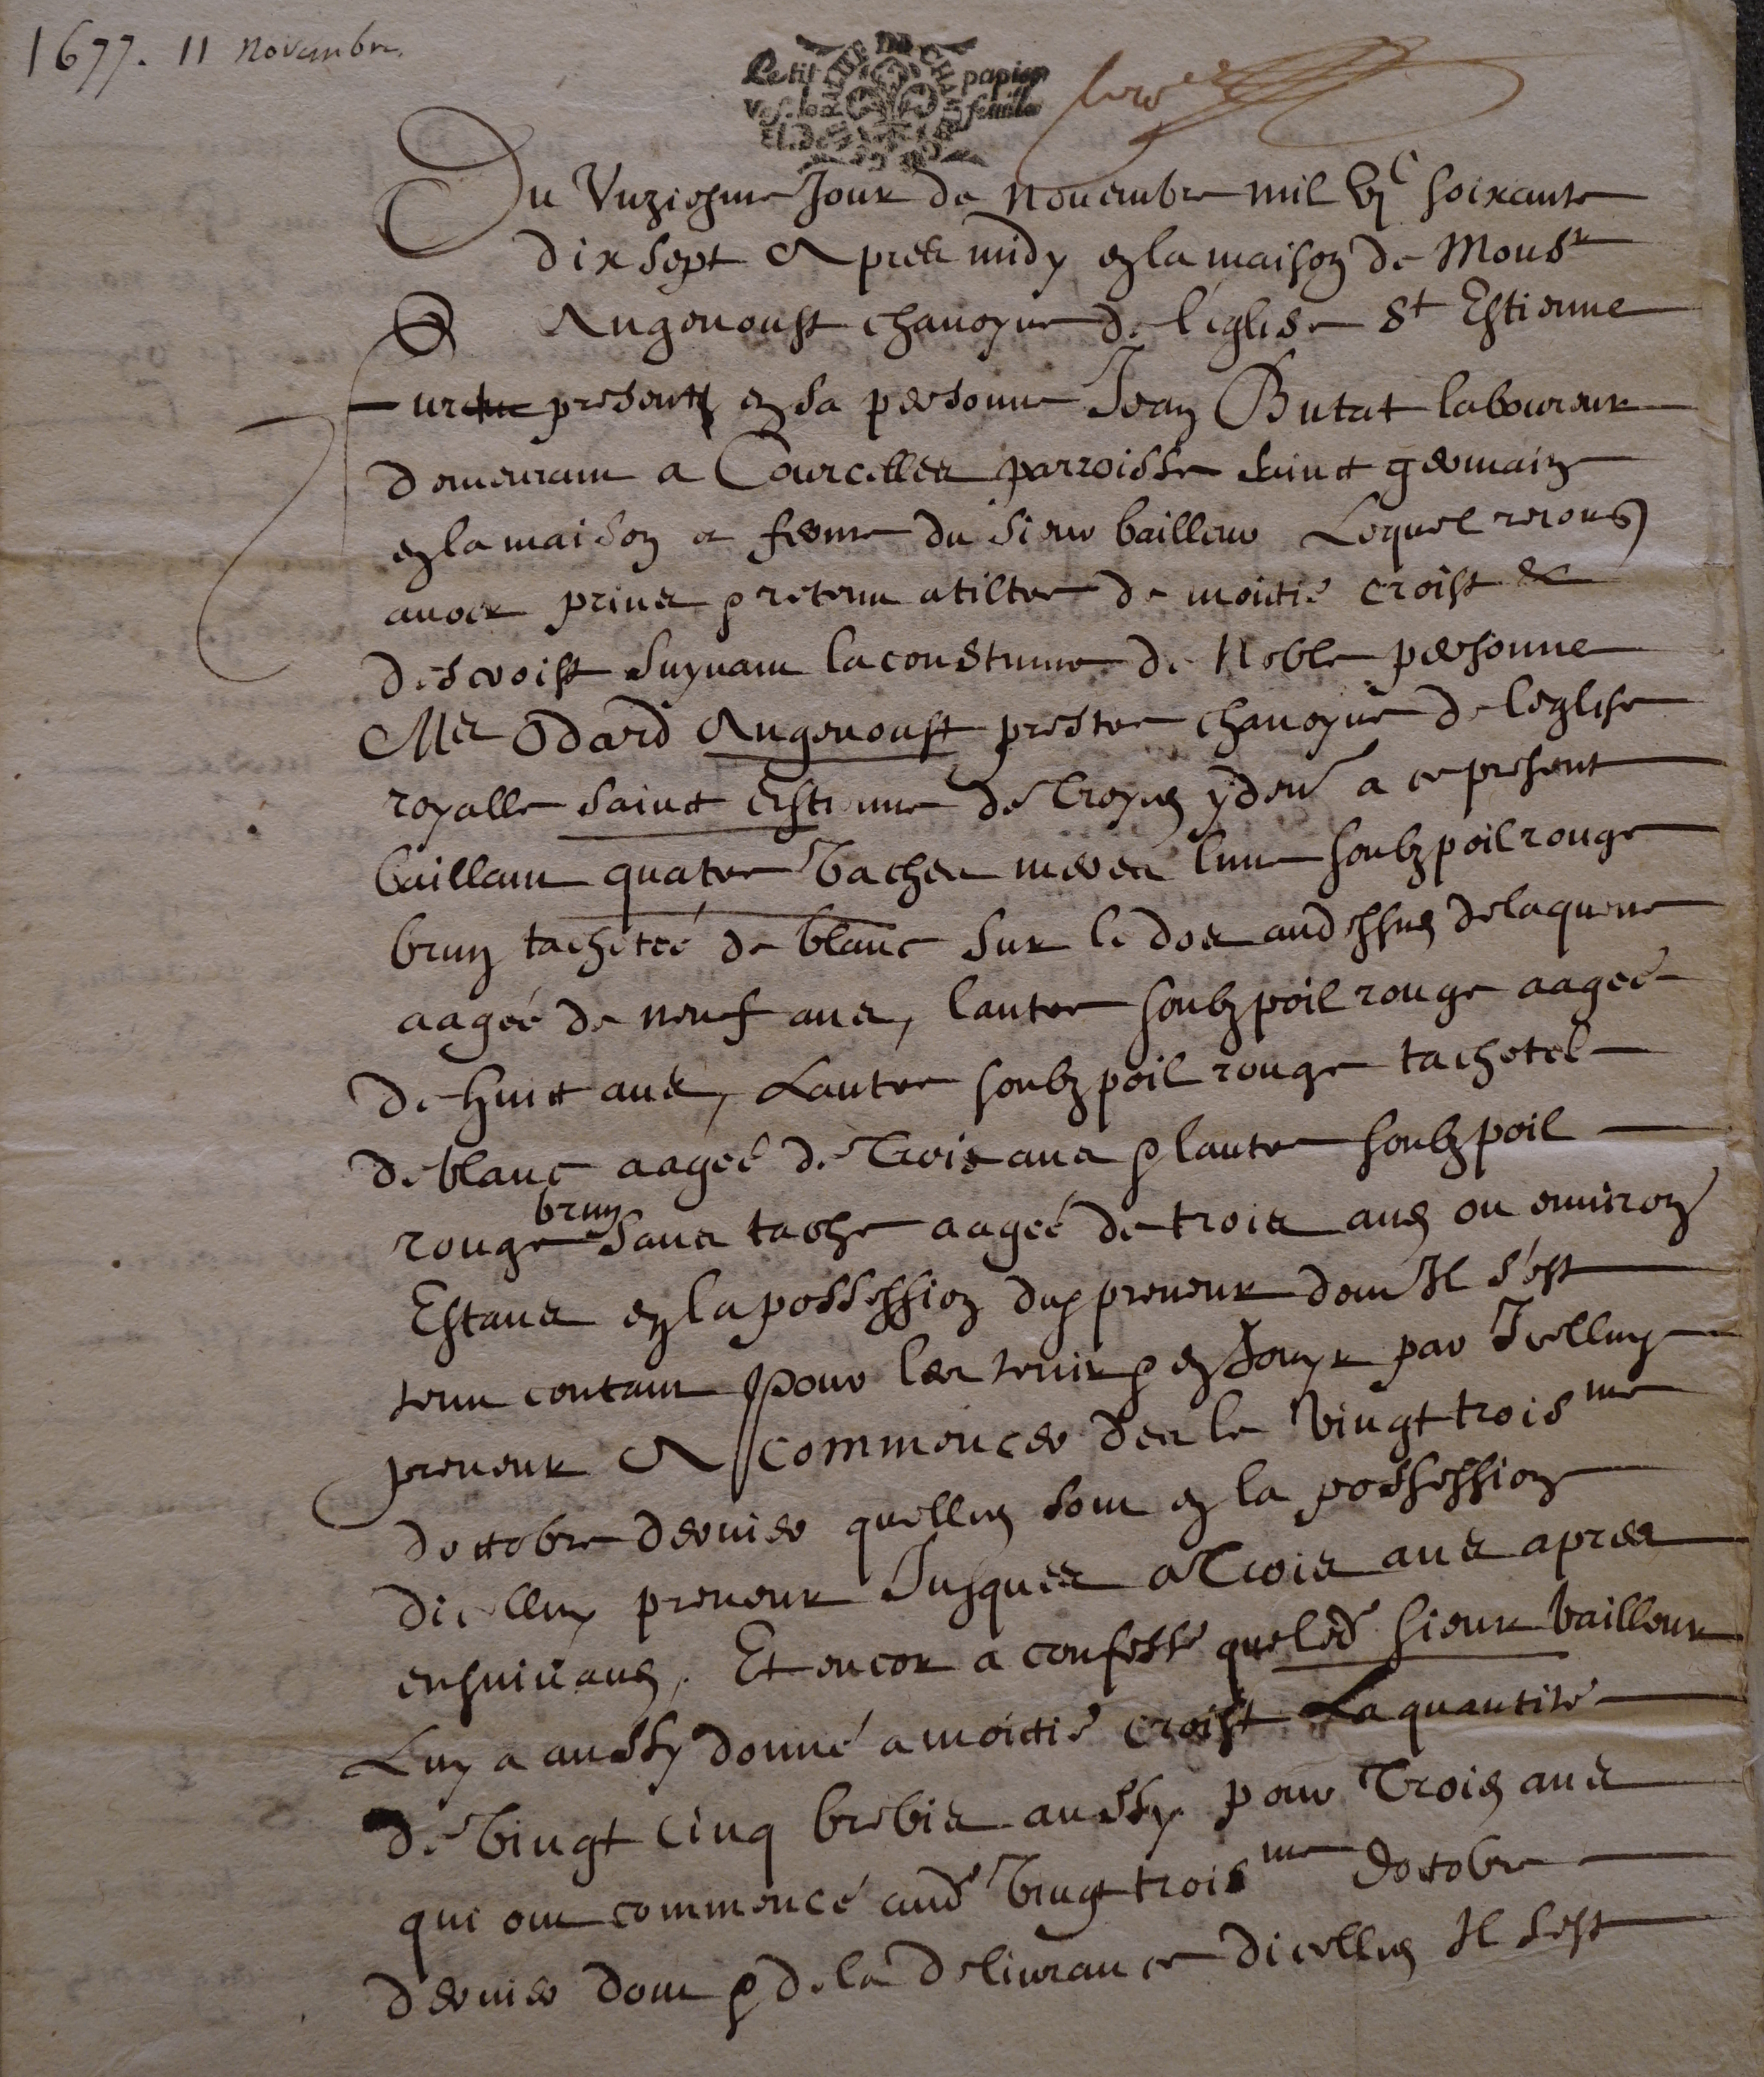 1677. 11 Novembre.
Petit papier
feuille
Du Unziesme Jour de Novembre mil vjc soixante
dix sept Apres midy en la maison de Monsr
Angenoust chanoyne de l'eglise St Estienne
present en sa personne Jean Butat laboureur
demeurant a Courcelles parroisse sainct germain
en la maison et ferme du sieur bailleur Lequel
avoir prins & retenu a tiltre de moitié croist &
descroist suyvant la coustume de Noble personne
Me Odard Angenoust prestre chanoyne de leglise
royalle sainct Estienne de Troyes y demt a ce present
baillant quatre vaches meres lune soubz poil rouge
brun tachetée de blanc sur le dos audessus de la queue
aagée de neuf ans, lautre soubz poil rouge aagée
de huict ans, Lautre soubz poil rouge tachetel
de blanc aagée de Trois ans & lautre soubz poil
rouge brun sans tache aagée de trois ans ou environ
Estans en la possession dud preneur dont Il s'est
tenu contant pour les tenir & en Jouyr par Icelluy
preneur A commencer des le vingt troisme
doctobre dernier quelles sont en la possession
dicelluy preneur Jusques a Trois ans apres
ensuivans, Et encor a confessé que led sieur bailleur
Luy a aussy donné a moictié croist La quantité
de vingt cinq brebis aussy pour Trois ans
qui ont commencé aud vingt troisme doctobre
dernier dont & de la delivrance dicelles Il sest